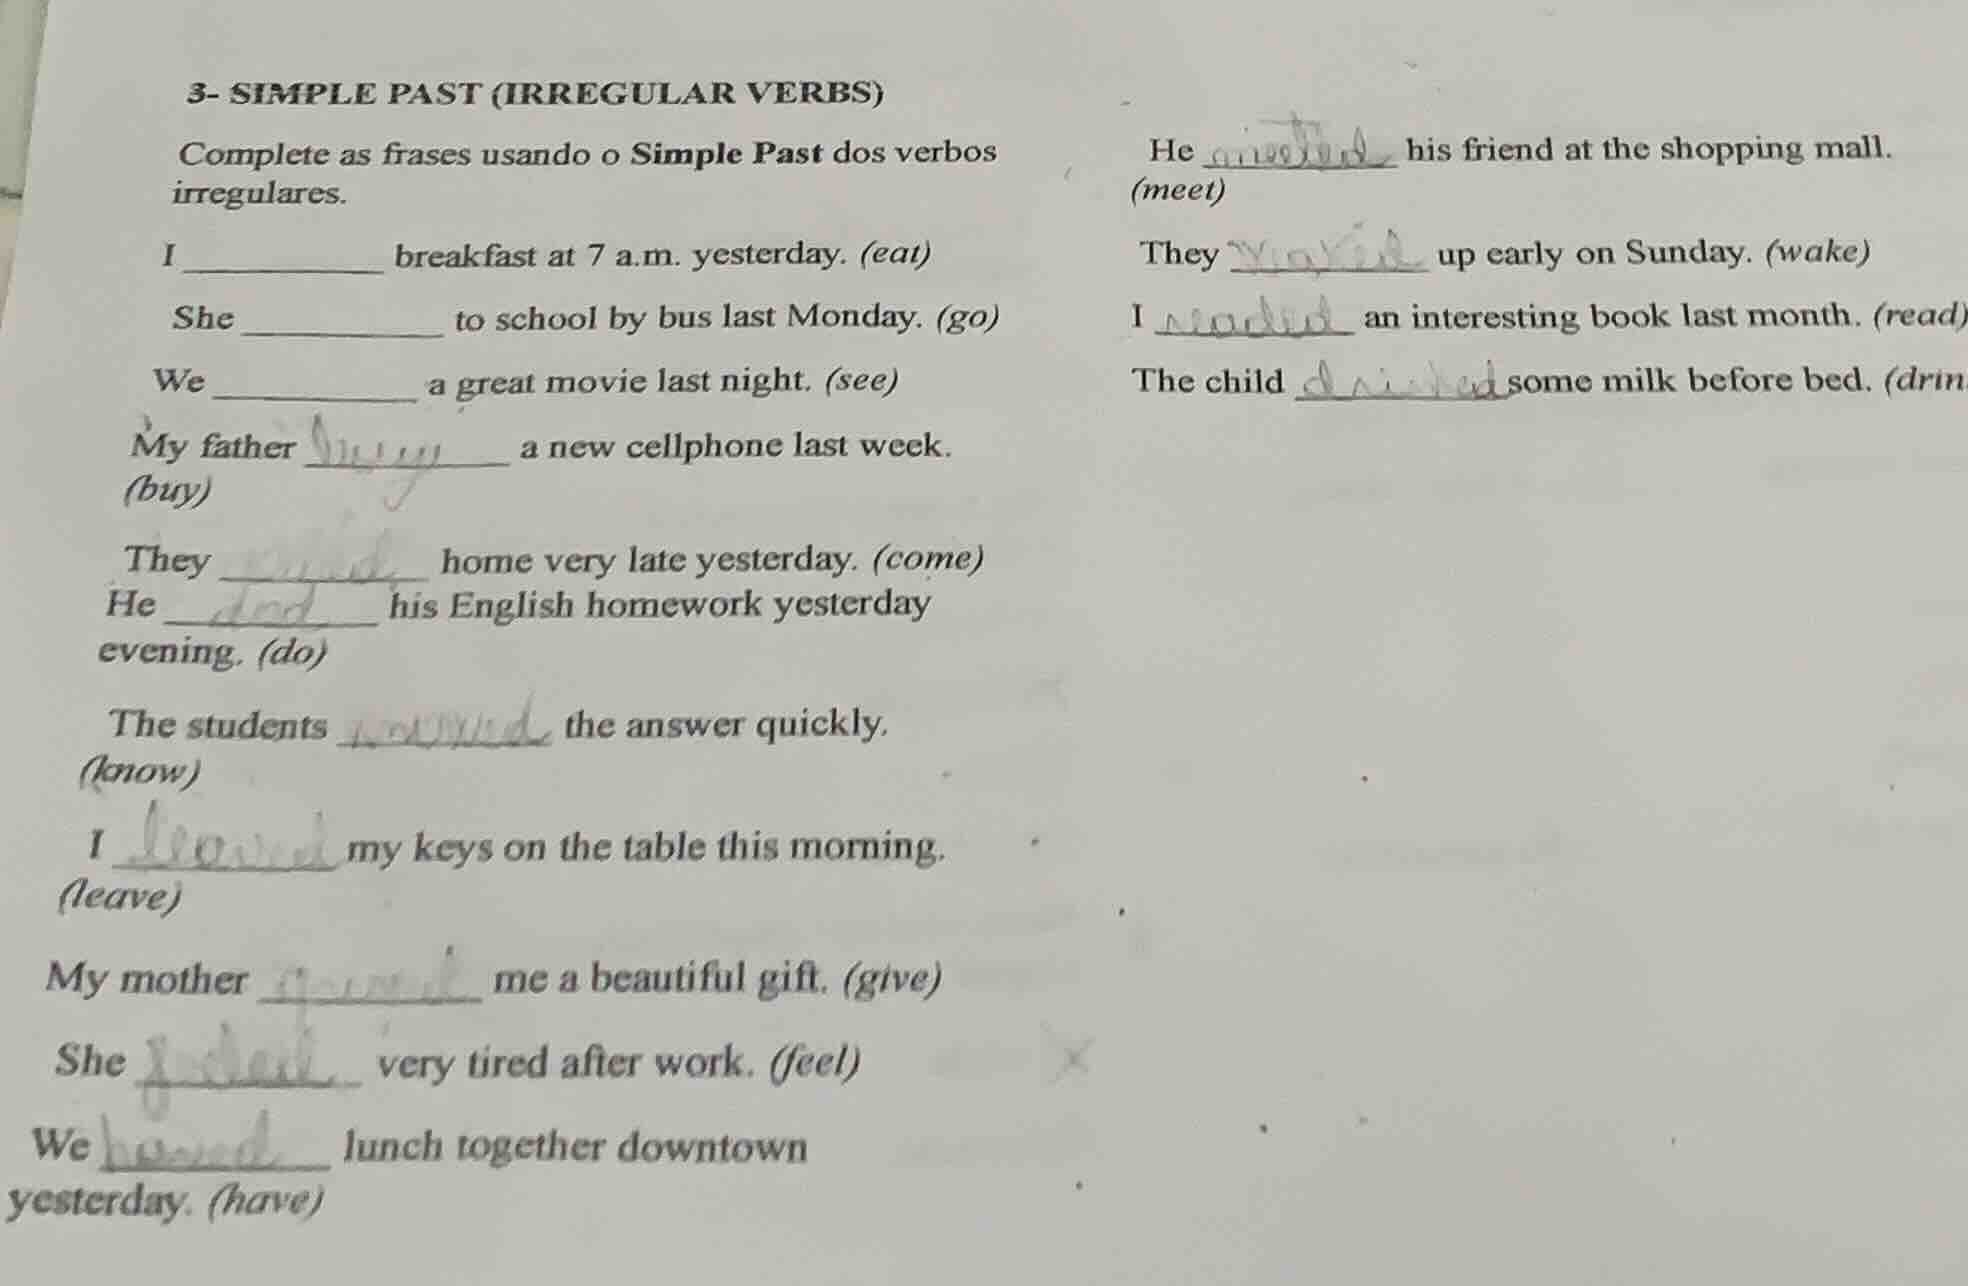 3- SIMPLE PAST (IRREGULAR VERBS)
Complete as frases usando o Simple Past dos verbos
irregulares.
I __________ breakfast at 7 a.m. yesterday. (eat)
She __________ to school by bus last Monday. (go)
We __________ a great movie last night. (see)
My father buy a new cellphone last week.
(buy)
They home very late yesterday. (come)
He his English homework yesterday
evening. (do)
The students the answer quickly.
(know)
I leaved my keys on the table this morning.
(leave)
My mother me a beautiful gift. (give)
She very tired after work. (feel)
We haved lunch together downtown
yesterday. (have)
He meeted his friend at the shopping mall.
(meet)
They waked up early on Sunday. (wake)
I readed an interesting book last month. (read)
The child drinked some milk before bed. (drin